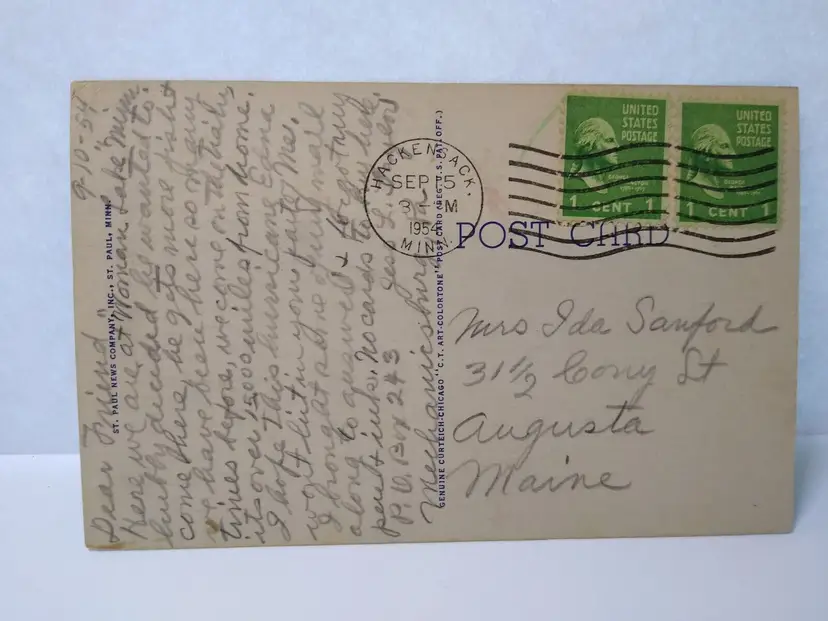 9-10-54
Dear Friend,
Here we are at Woman Lake Minn
hubby decided he wanted to
come there, he gets more fish
we have been here so many
times before, we come on the train,
its over 1500 miles from home.
I hope this hurricane Edna
wont hit in your part, Me.
I brought some mail
along to answer & forgot my
pen & ink. No cards to buy here.
P.O. Box 243
Mechanicsburg
ST. PAUL NEWS COMPANY, INC., ST. PAUL, MINN.
GENUINE CURTEICH-CHICAGO "C.T. ART-COLORTONE" POST CARD (REG. U.S. PAT. OFF.)
HACKENSACK.
SEP 15
M
1954
MINN.
UNITED
STATES
POSTAGE
1 CENT 1
UNITED
STATES
POSTAGE
1 CENT 1
POST CARD
Mrs Ida Sanford
31 1/2 Cony St
Augusta
Maine